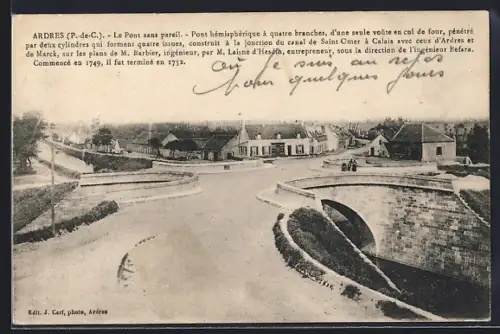 ARDRES (P.-de-C.). - Le Pont sans pareil. - Pont hémisphérique à quatre branches, d'une seule voûte en cul de four, pénétré
par deux cylindres qui forment quatre issues, construit à la jonction du canal de Saint-Omer à Calais avec ceux d'Ardres et
de Marck, sur les plans de M. Barbier, ingénieur, par M. Laisné d'Hesdin, entrepreneur, sous la direction de l'ingénieur Befara.
Commencé en 1749, il fut terminé en 1752.
Où je suis au repos
pour quelques jours
Edit. J. Carf, photo, Ardres